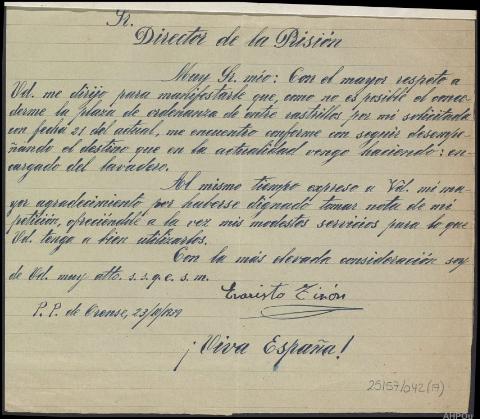 Sr.
Director de la Prisión
Muy Sr. mío: Con el mayor respeto a
Vd. me dirijo para manifestarle que, como no es posible el conce-
derme la plaza de ordenanza de entre rastrillos por mi solicitada
con fecha 21 del actual, me encuentro conforme con seguir desempe-
ñando el destino que en la actualidad vengo haciendo: en-
cargado del lavadero.
Al mismo tiempo expreso a Vd. mi ma-
yor agradecimiento por haberse dignado tomar nota de mi
petición, ofreciéndole a la vez mis modestos servicios para lo que
Vd. tenga a bien utilizarlos.
Con la más elevada consideración soy
de Vd. muy atto. s. s. q. e. s. m.
Evaristo
P. P. de Orense, 23/
¡Viva España!
25157/042(17)
AHPOu